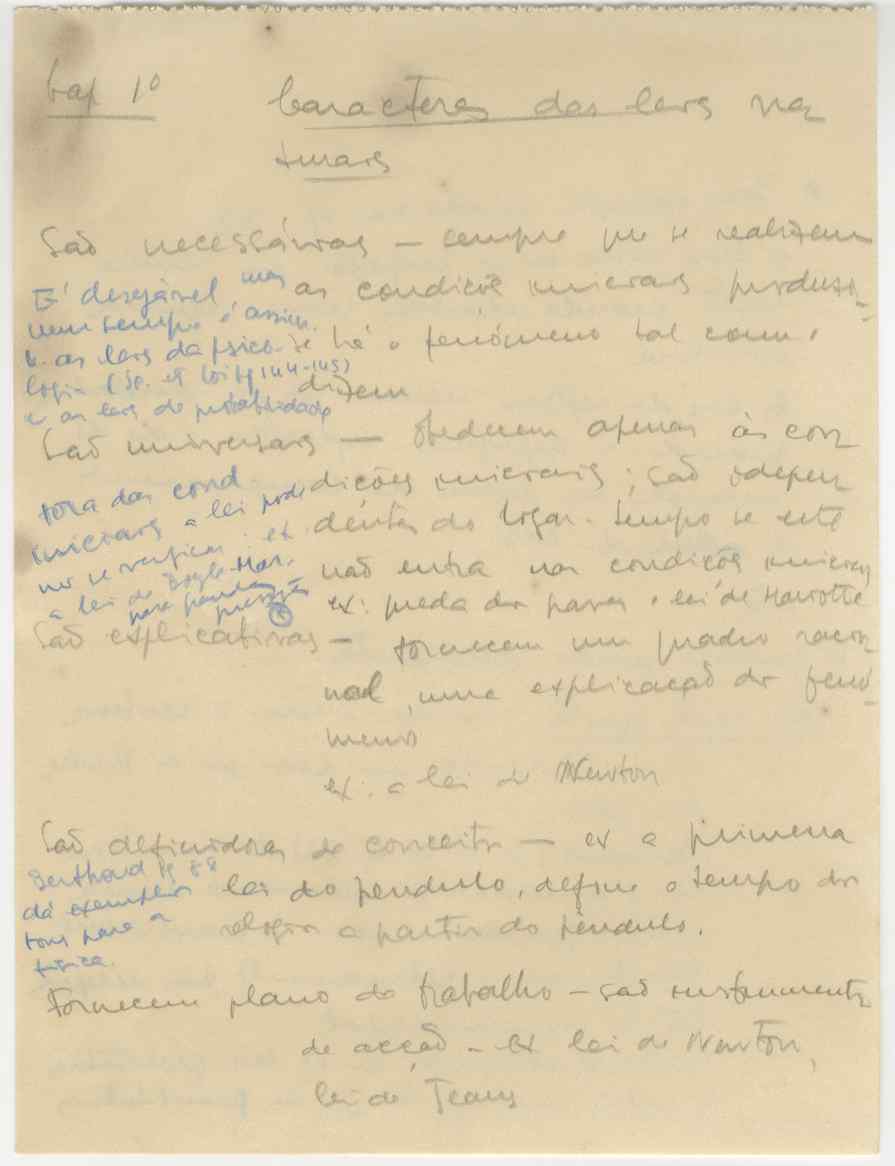 Cap 1º
Caracteres das leis na
turais
São necessárias — sempre que se realizem
as condições iniciais produzi-
se há o fenómeno tal como
dizem
É desejável mas
nem sempre é assim.
as leis da psico
logia (Sp. et loi pg 144-145)
e as leis de probabilidade
São universais — obedecem apenas às con
dições iniciais; são indepen
dentes do lugar. tempo se este
não entra nas condições iniciais
ex: queda dos graves, lei de Mariotte
fora das cond
iniciais a lei pode
não se verificar. ex
a lei de Boyle-Mar.
para grandes
pressões
São explicativas — fornecem um quadro racio
nal, uma explicação do fenó-
meno
ex: a lei de Newton
São definidoras de conceitos — ex a primeira
lei do pendulo, define o tempo do
relogio a partir do pêndulo.
pg 88
dá exemplos
bons para a
física.
Fornecem plano de trabalho — são instrumentos
de acção — ex lei de Newton,
lei de Jeans